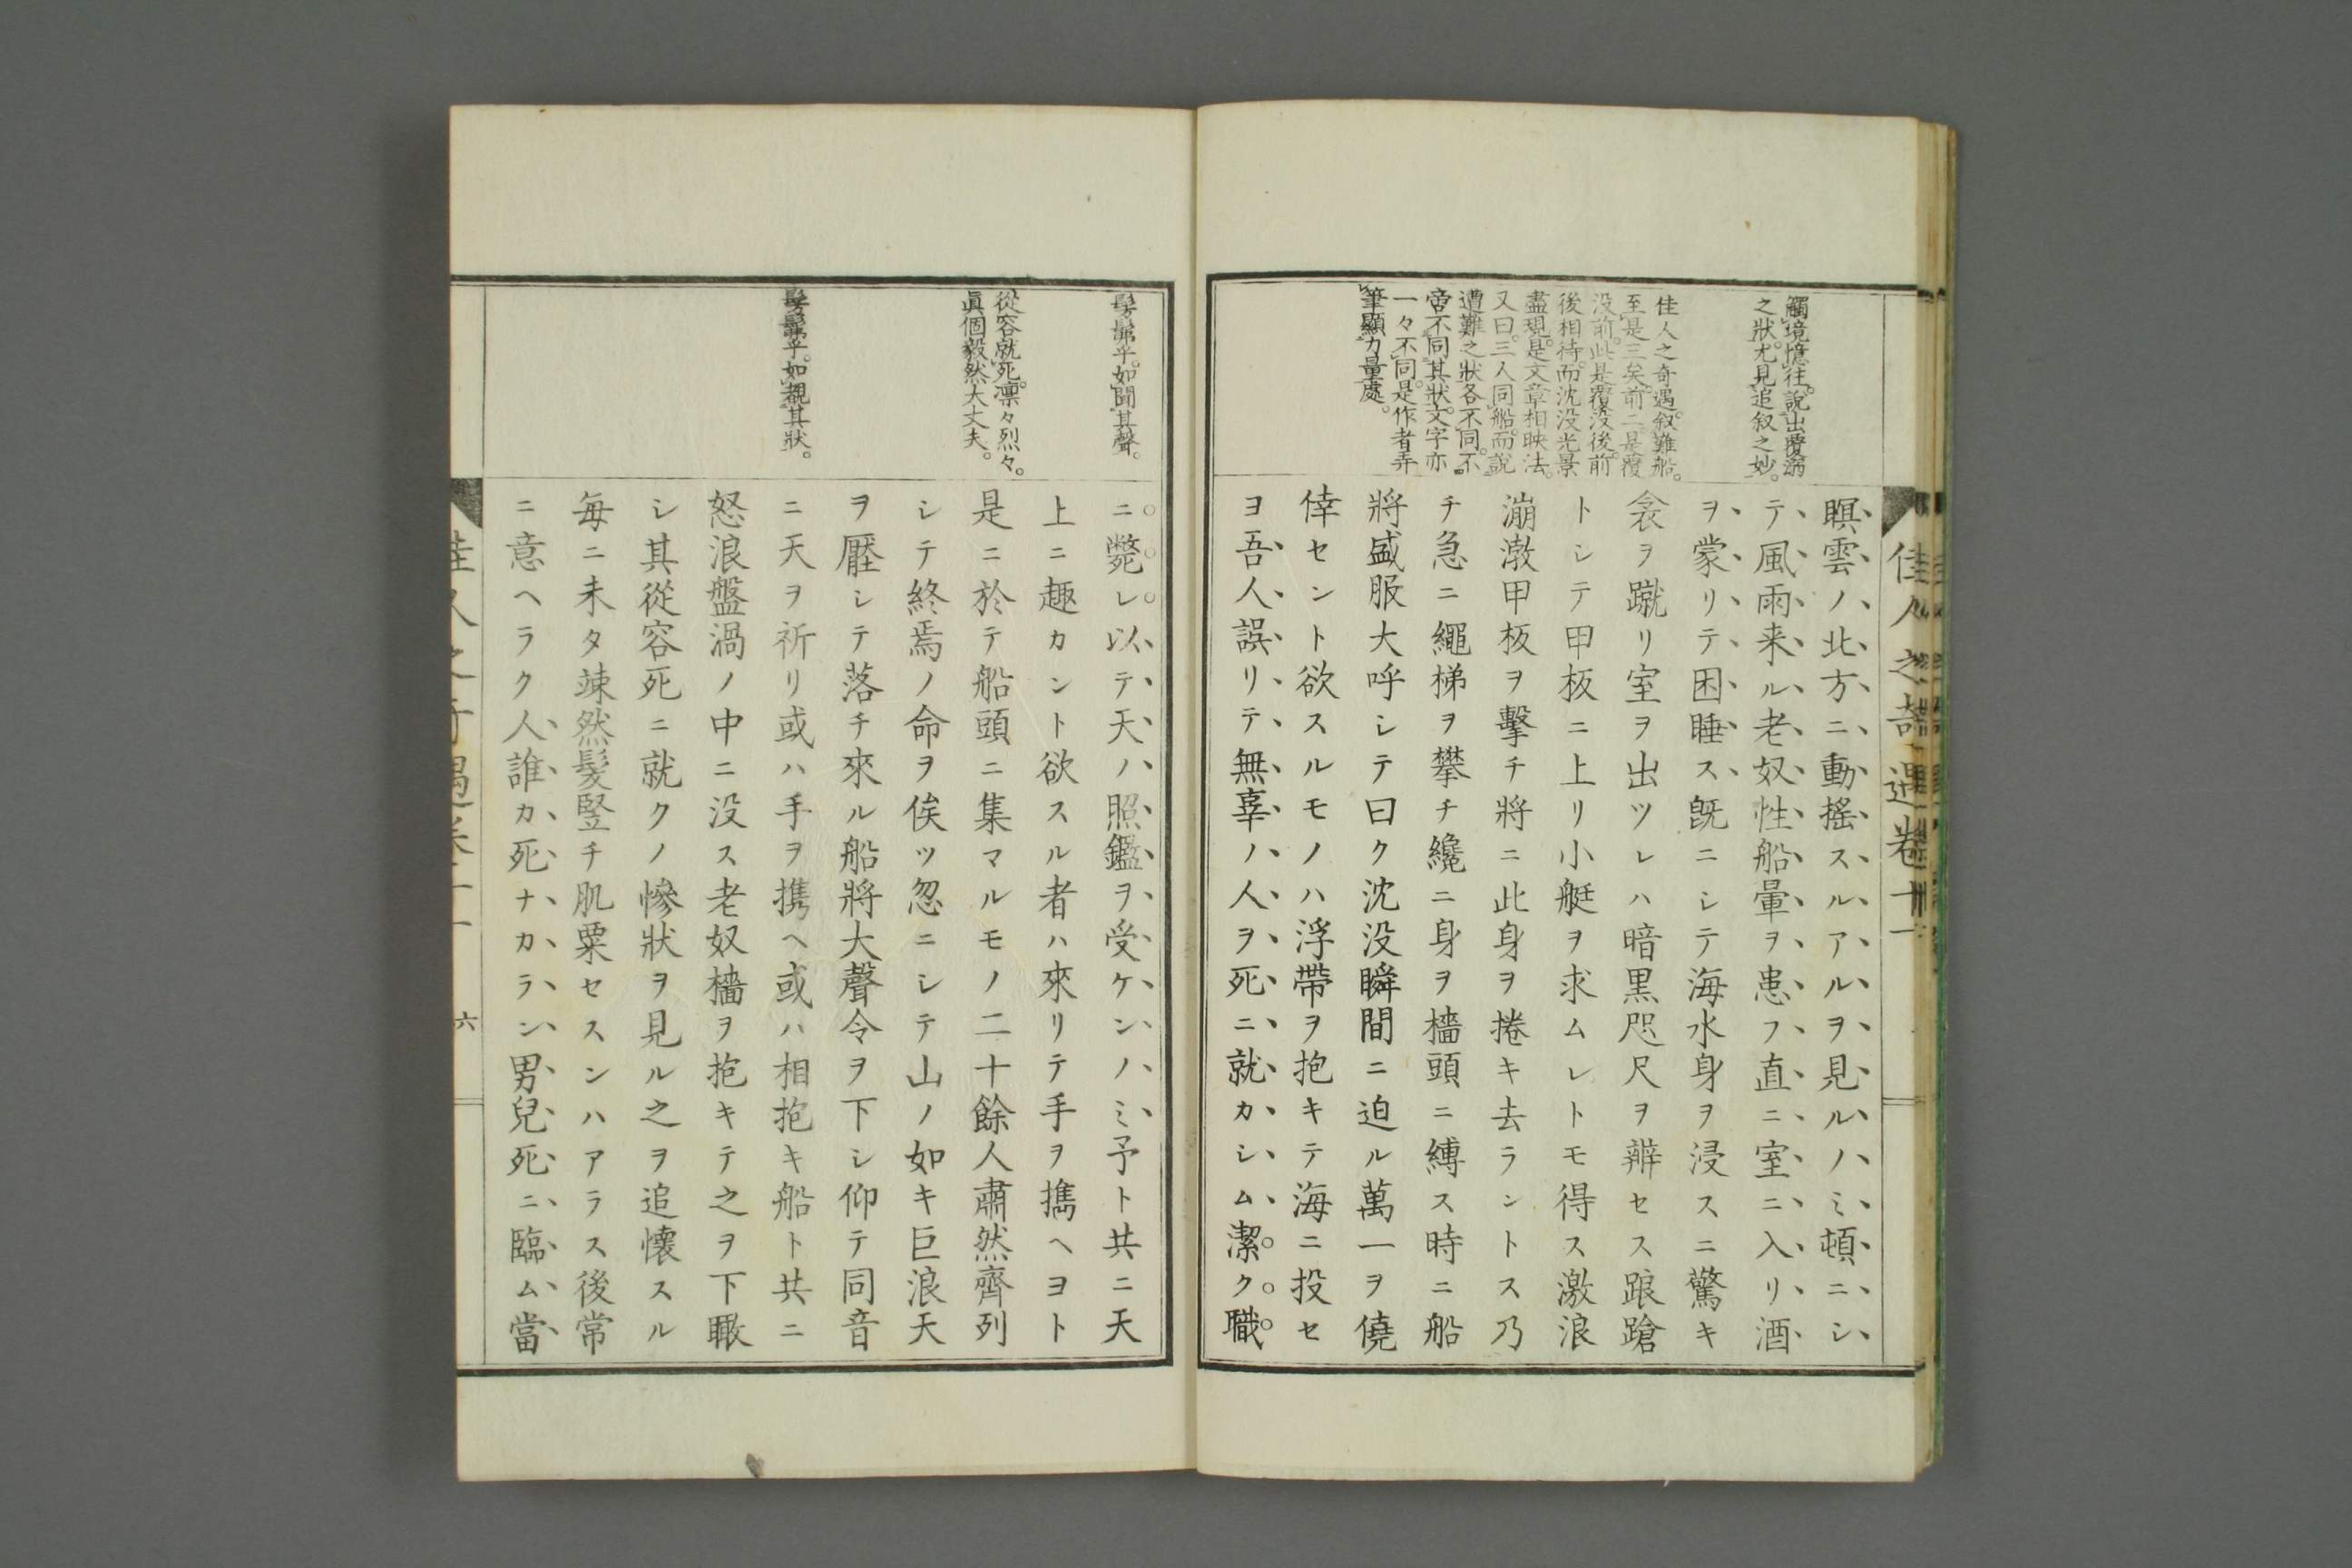 佳人之奇遇卷十一
觸境憶往。說出覆溺
之狀。尤見追叙之妙。
佳人之奇遇。叙難船。
至是三矣。前二是覆
没前。此是覆没後。前
後相待。而沈没光景
盡現。是文章相映法。
又曰。三人同船。而說
遭難之狀各不同。不
啻不同其狀。文字亦
一々不同。是作者弄
筆顯力量處。
瞑雲ノ北方ニ動搖スルアルヲ見ルノミ頓ニシ
テ風雨来ル老奴性船暈ヲ患フ直ニ室ニ入リ酒
ヲ蒙リテ困睡ス既ニシテ海水身ヲ浸スニ驚キ
衾ヲ蹴リ室ヲ出ツレハ暗黒咫尺ヲ辨セス踉蹌
トシテ甲板ニ上リ小艇ヲ求ムレトモ得ス激浪
漰渤甲板ヲ擊チ將ニ此身ヲ捲キ去ラントス乃
チ急ニ繩梯ヲ攀チ纔ニ身ヲ檣頭ニ縛ス時ニ船
將盛服大呼シテ曰ク沈没瞬間ニ迫ル萬一ヲ僥
倖セント欲スルモノハ浮帶ヲ抱キテ海ニ投セ
ヨ吾人誤リテ無辜ノ人ヲ死ニ就カシム潔ク職
髣髴乎。如聞其聲。
從容就死。凛々烈々。
眞個毅然大丈夫。
髣髴乎。如覩其狀。
ニ斃レ以テ天ノ照鑑ヲ受ケンノミ予ト共ニ天
上ニ趣カント欲スル者ハ來リテ手ヲ攜ヘヨト
是ニ於テ船頭ニ集マルモノ二十餘人肅然齊列
シテ終焉ノ命ヲ俟ツ忽ニシテ山ノ如キ巨浪天
ヲ壓シテ落チ來ル船將大聲令ヲ下シ仰テ同音
ニ天ヲ祈リ或ハ手ヲ携ヘ或ハ相抱キ船ト共ニ
怒浪盤渦ノ中ニ没ス老奴檣ヲ抱キテ之ヲ下瞰
シ其從容死ニ就クノ慘狀ヲ見ル之ヲ追懷スル
毎ニ未タ竦然髮竪チ肌粟セスンハアラス後常
ニ意ヘラク人誰カ死ナカラン男兒死ニ臨ム當
六